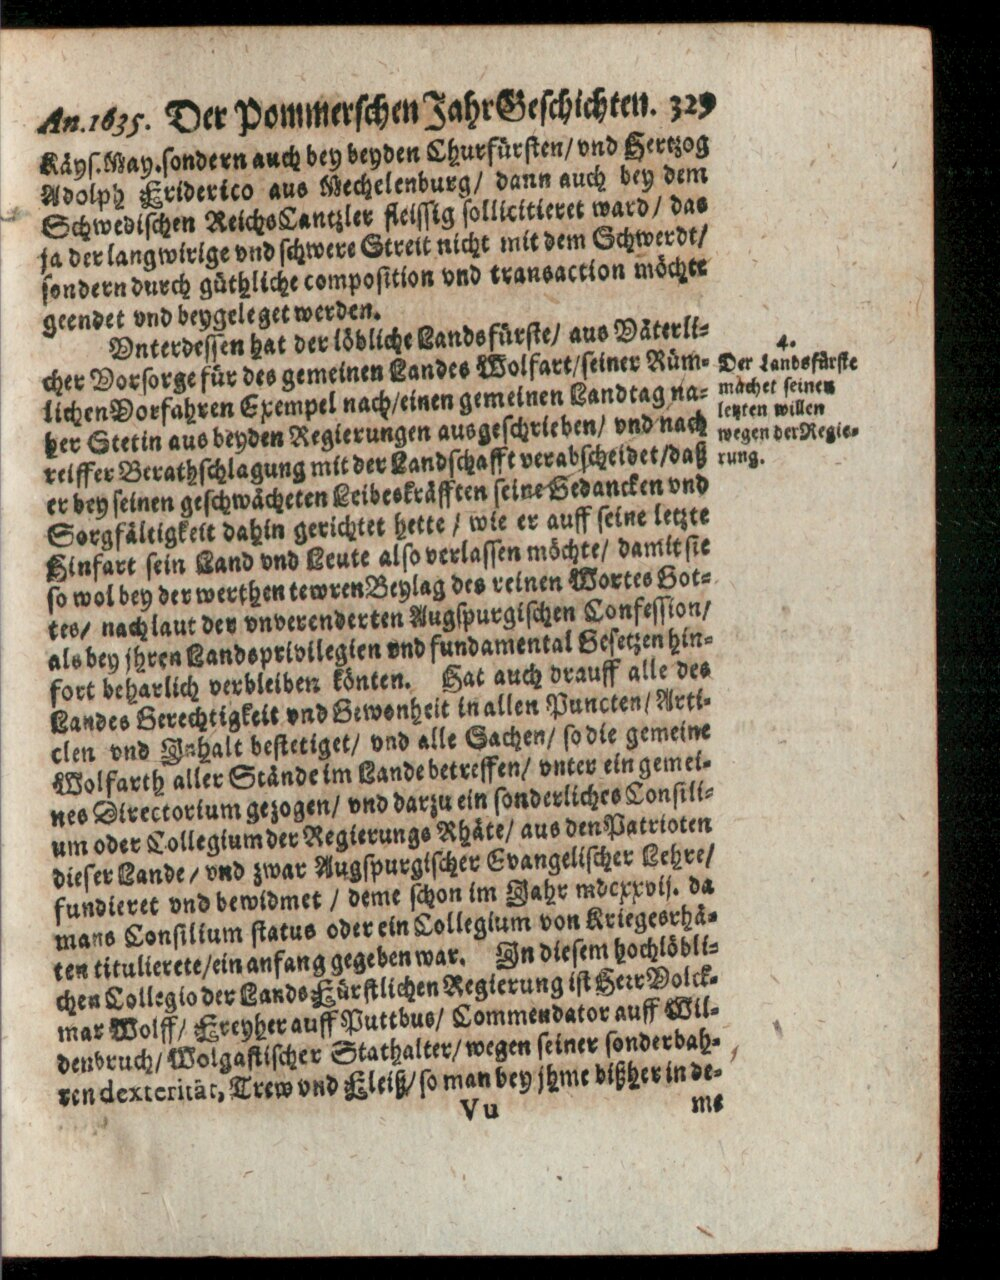 An. 1635. Der Pommerschen JahrGeschichten. 329
Käys. May. sondern auch bey beyden Churfürsten/ vnd Hertzog
Adolph Friderico aus Mechelenburg/ dann auch bey dem
Schwedischen ReichsCantzler fleissig sollicitieret ward/ das
ja der langwirige vnd schwere Streit nicht mit dem Schwerdt/
sondern durch güthliche composition vnd transaction möchte
geendet vnd beygeleget werden.
Vnterdessen hat der löbliche Landsfürste/ aus Väterli-
cher Vorsorge für des gemeinen Landes Wolfart/ seiner Rüm-
lichen Vorfahren Exempel nach/ einen gemeinen Landtag na-
her Stetin aus beyden Regierungen ausgeschrieben/ vnd nach
reiffer Berathschlagung mit der Landschafft verabscheidet/ daß
er bey seinen geschwächeten Leibeskräfften seine Gedancken vnd
Sorgfältigkeit dahin gerichtet hette/ wie er auff seine letzte
Hinfart sein Land vnd Leute also verlassen möchte/ damit sie
so wol bey der werthen tewren Beylag des reinen Wortes Got-
tes/ nach laut der vnverenderten Augspurgischen Confession/
als bey jhren Landsprivilegien vnd fundamental Gesetzen hin-
fort beharlich verbleiben könten. Hat auch drauff alle des
Landes Gerechtigkeit vnd Gewonheit in allen Puncten/ Arti-
clen vnd Inhalt bestetiget/ vnd alle Sachen/ so die gemeine
Wolfarth aller Stände im Lande betreffen/ vnter ein gemei-
nes Directorium gezogen/ vnd darzu ein sonderliches Consili-
um oder Collegium der Regierungs Rhäte/ aus den Patrioten
dieser Lande/ vnd zwar Augspurgischer Evangelischer Lehre/
fundieret vnd bewidmet/ deme schon im Jahr mdcxxvij. da
mans Consilium status oder ein Collegium von Kriegesrhä-
ten titulierete/ ein anfang gegeben war. In diesem hochlöbli-
chen Collegio der LandsFürstlichen Regierung ist Herr Volck-
mar Wolff/ Freyher auff Puttbus/ Commendator auff Wil-
denbruch/ Wolgastischer Stathalter/ wegen seiner sonderbah-
ren dexterität, Trew vnd Fleiß/ so man bey jhme bißher in de-
Vu me
4.
Der Landsfürste
machet seinen
letzten willen
wegen der Regie-
rung.